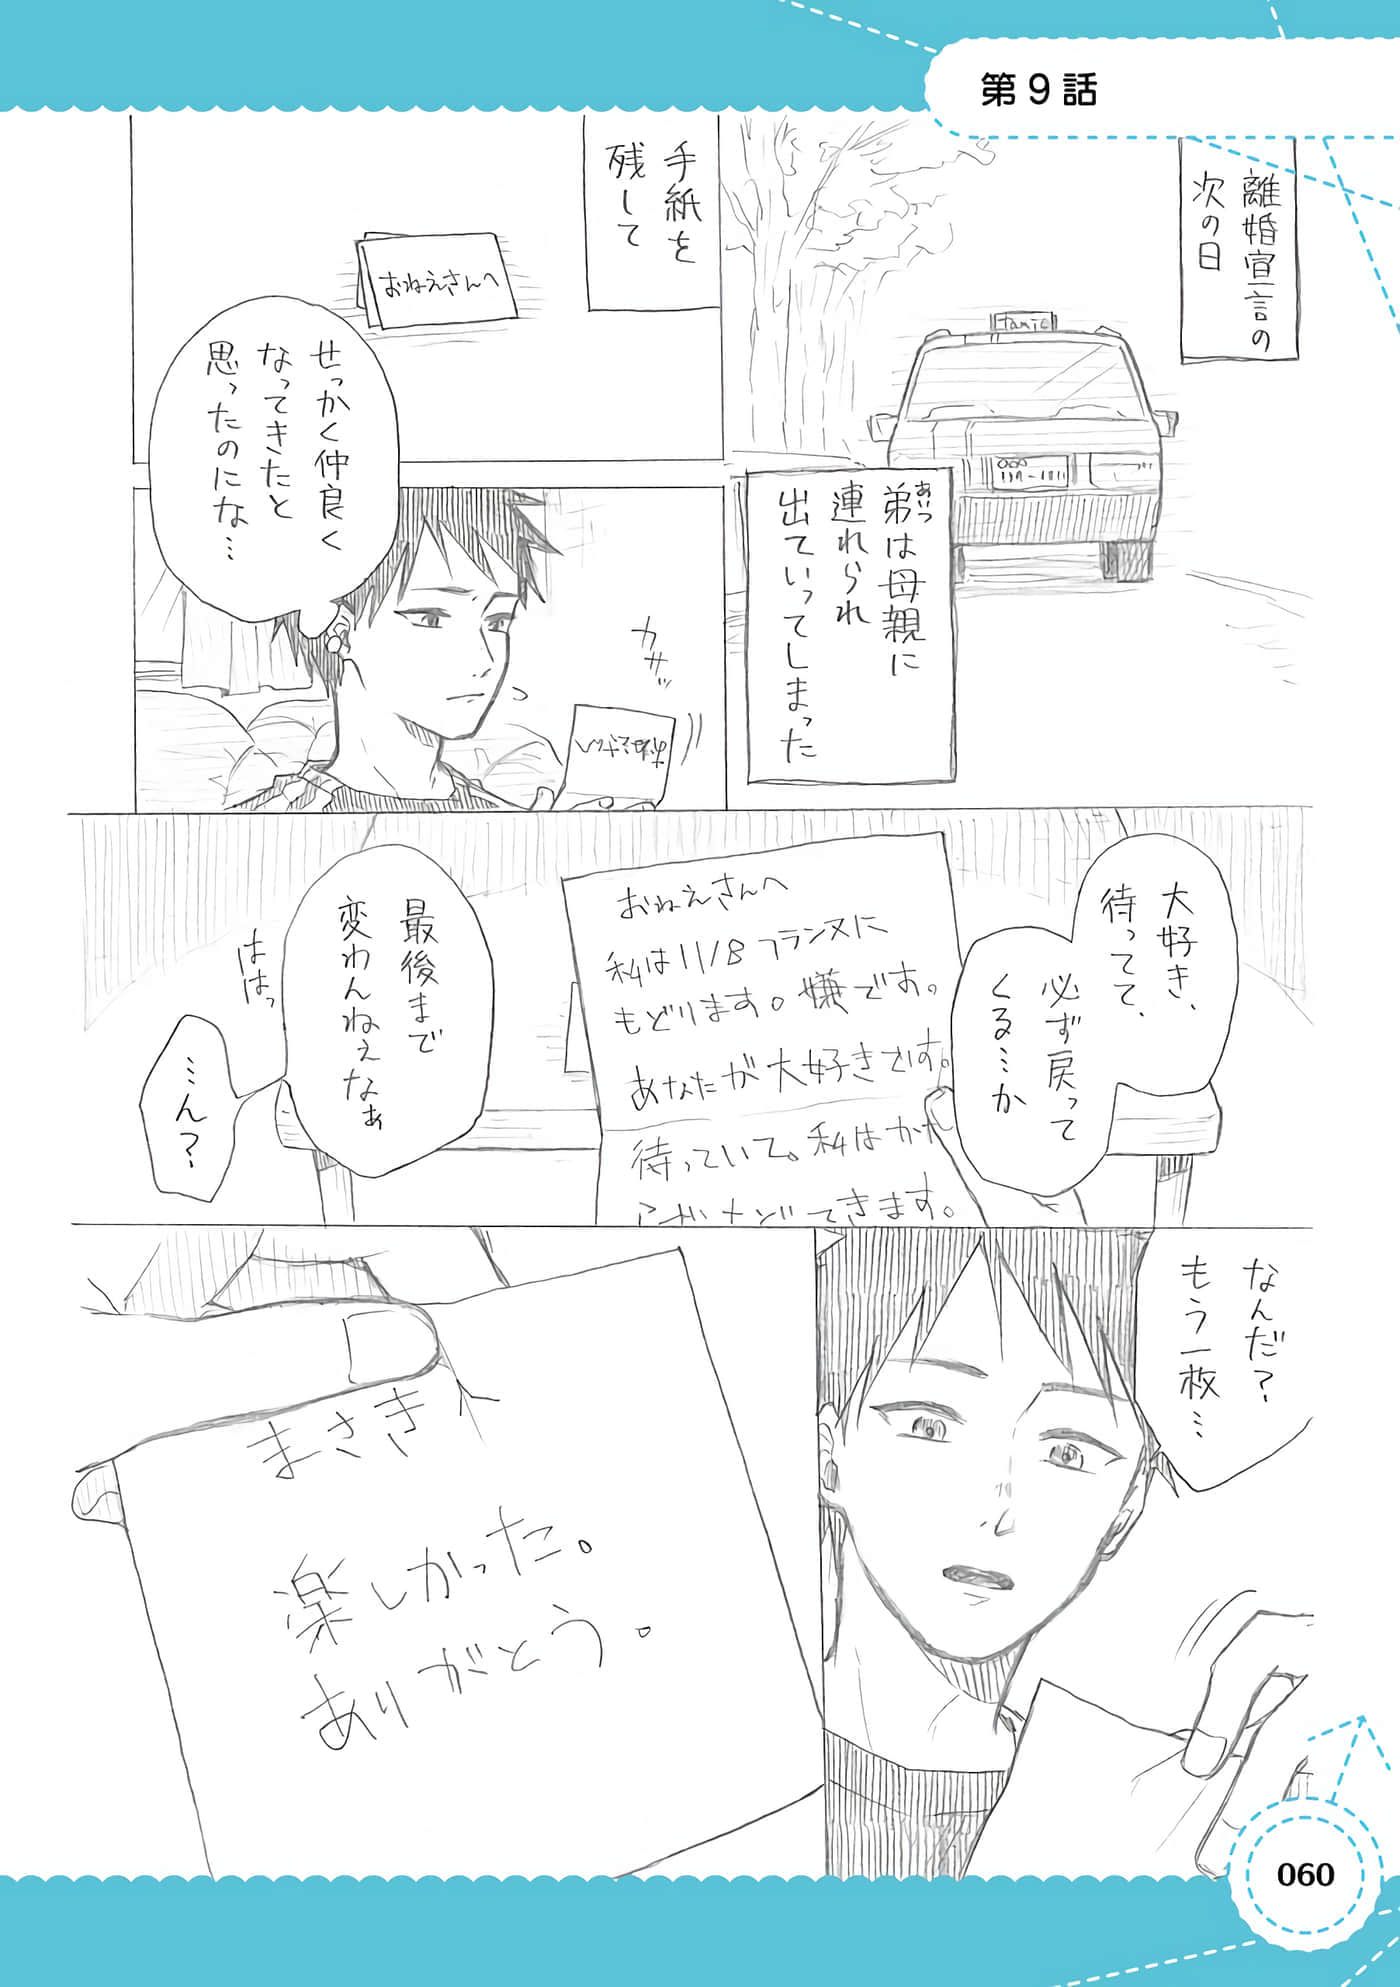 第9話
離婚宣言の
次の日
弟は母親に
あいつ
連れられ
出ていってしまった
手紙を
残して
おねえさんへ
せっかく仲良く
なってきたと
思ったのにな…
カサッ
大好き、
待ってて、
必ず戻って
くる…か
おねえさんへ
私は11/8フランスに
もどります。嫌です。
あなたが大好きです。
待っていて。私はかな
きます。
最後まで
変わんねぇなぁ
ははっ
…ん?
なんだ?
もう一枚…
まさきへ
楽しかった。
ありがとう。
060